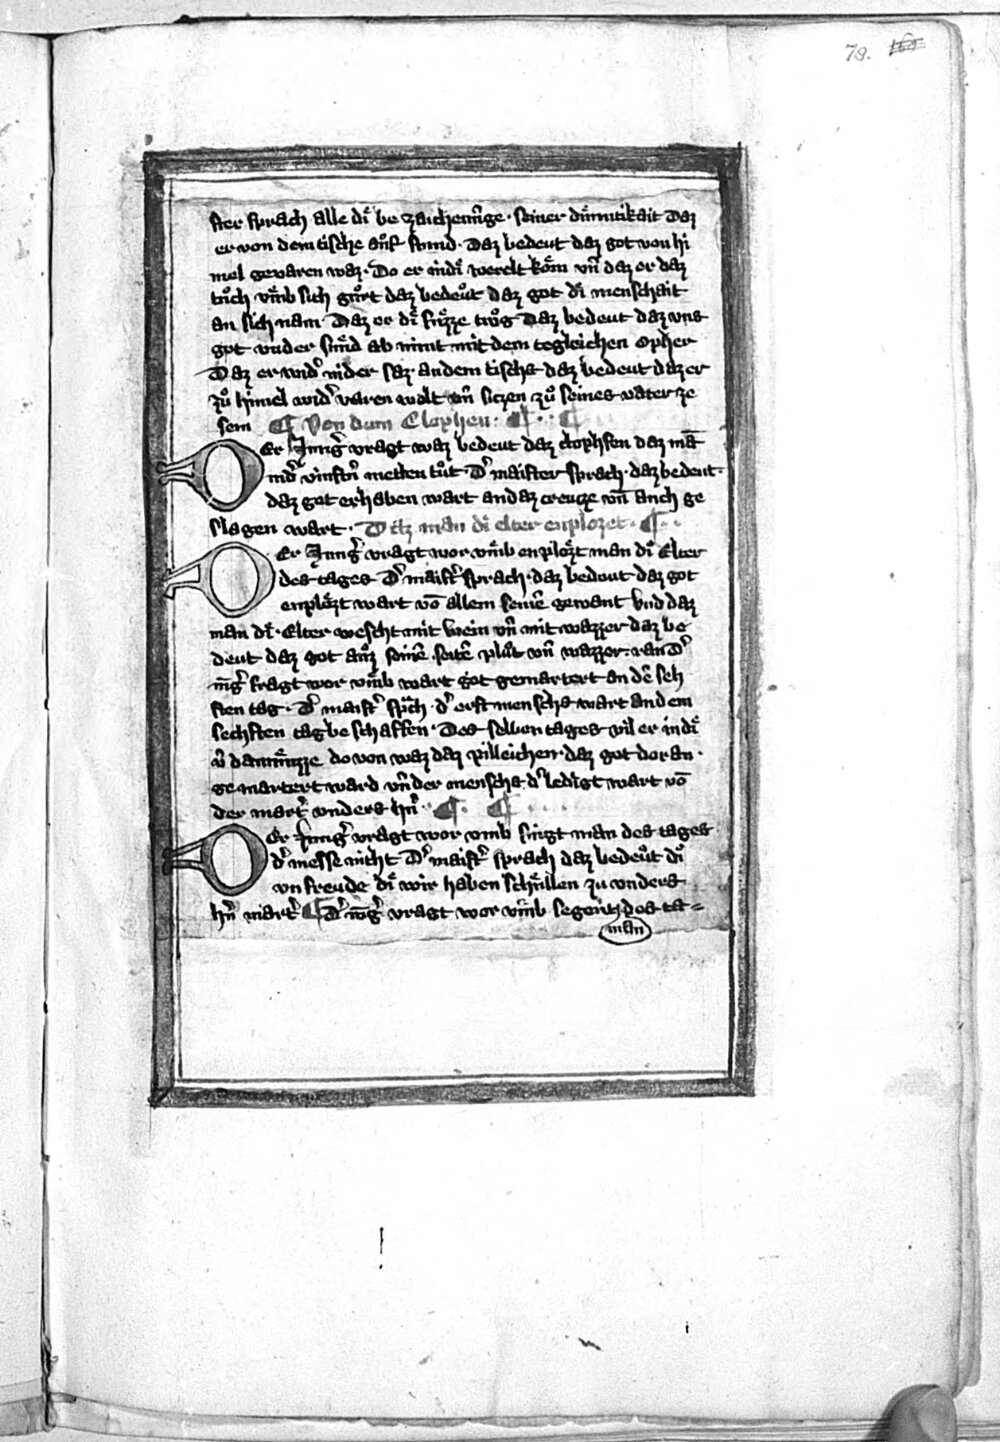 79. 160
ster sprach alle di be zaichenu̅ge · seiner du̍mutikait Daz
er von dem tische auf stund · Daz bedeut daz got von hi
mel gevaren waz · Do er in di werelt kom vn̅ daz er daz
tuͦch vmb sich guͦrt daz bedeuͦt daz got di menschait
an sich nam · Daz er di fuzze twoͦg Daz bedeut daz vns
got vnder sund ab nimt mit dem tegleichen opher
Daz er wid᷒ nider saz · an dem tische daz bedeut daz er
zuͦ himel wid᷒ varen wolt vn̅ siczen zuͦ seines vater ze
sem ¶ Von dem Clophen · ¶ · · ¶
Er Jung᷒ vragt waz bedeut daz clophfen daz ma̅
in d᷒ vinst᷒n metten tuͦt · D᷒ maister sprach · daz bedeut ·
daz got erhaben wart an daz creucze vn̅ auch ge
slagen wart · Daz man di elter enplozet · ¶ · ·
Er Jung᷒ vragt wor vmb enplozt man di Elter
des tages D᷒ maist᷒ sprach · daz bedeut daz got
enplozt wart vo̅ allem seine̅ gewant vnd daz
man di · Elter wescht mit wein vn̅ mit wazzer daz be
deut daz got auz seine̅ · seite̅ pluͦt vn̅ wazzer · ran D᷒
iu̅g᷒ fragt wor vmb wart got gemartert an de̅ seh
sten tag · D᷒ maist᷒ sp᷒ch · d᷒ erst mensche wart an dem
sechsten tag be schaffen · Des selben tages viler in di
do von waz daz pilleichen · daz got doran ·
ge martert ward vn̅ der mensche d᷒ ledigt wart vo̅
der mart᷒ vnders h᷒n · ¶ · ¶ · · · ·
Er Jung᷒ vragt wor vmb singt man des tages
d᷒ messe nicht D᷒ maist᷒ sprach daz bedeuͦt di
vn freude di wir haben schullen zu vnders
h᷒n mart᷒ ¶ D᷒ iu̅g᷒ vragt wor vmb segent des ta=
man